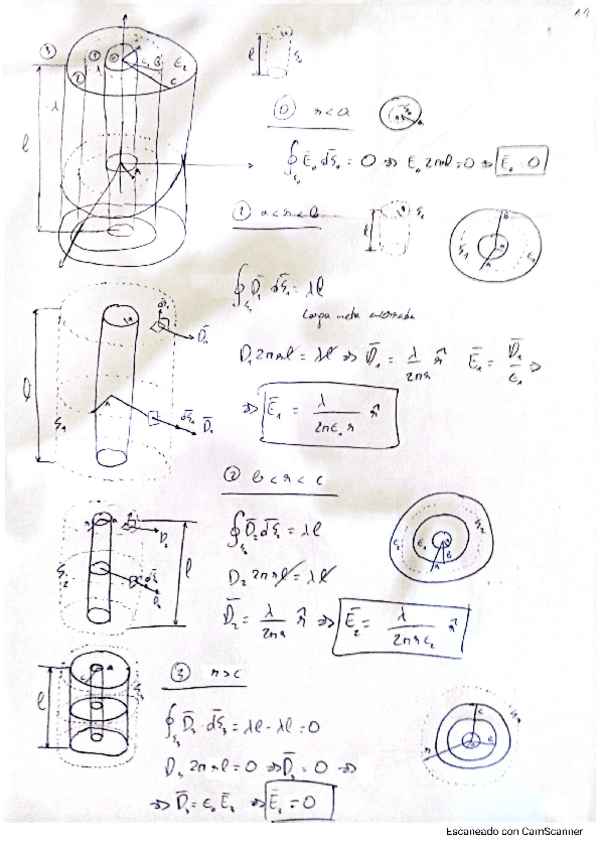 11
③ ① ⓪ ε₁ B ε₂
② c
λ
l
l a ξ₀
⓪ r < a
∮ Ē₀ dξ̄₀ = 0 ⇒ E₀ 2πrl = 0 ⇒ Ē₀ = 0
① a < r < b
l ξ₁
∮ D̄₁ dξ̄₁ = λl
Carga neta encerrada
D₁ 2πrl = λl ⇒ D̄₁ = λ/2πr r̂ Ē₁ = D̄₁/ε₁ ⇒
⇒ Ē₁ = λ/2πε₁r r̂
dξ̄₁ D̄₁
l
ξ₁
dξ̄₁ D̄₁
② b < r < c
∮ D̄₂ dξ̄₂ = λl
D₂ 2πrl = λl
D̄₂ = λ/2πr r̂ ⇒ Ē₂ = λ/2πrε₂ r̂
ξ₂ D̄₂ l
③ r > c
∮ D̄₃ · dξ̄₃ = λl - λl = 0
D₃ 2πrl = 0 ⇒ D̄₃ = 0 ⇒
⇒ D̄₃ = ε₀ Ē₃ ⇒ Ē₃ = 0
l ξ₃
Escaneado con CamScanner